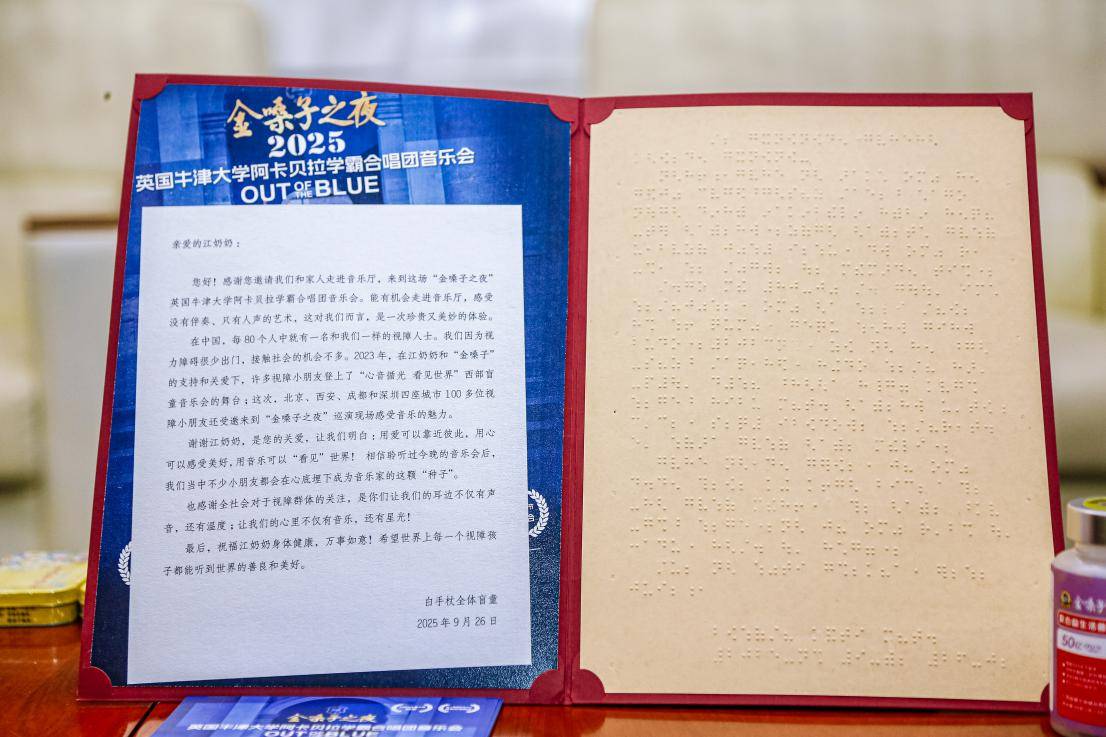 金嗓子之夜
2025
英国牛津大学阿卡贝拉学霸合唱团音乐会
OUT OF THE BLUE
亲爱的江奶奶：
您好！感谢您邀请我们和家人走进音乐厅，来到这场“金嗓子之夜”
英国牛津大学阿卡贝拉学霸合唱团音乐会。能有机会走进音乐厅，感受
没有伴奏、只有人声的艺术，这对我们而言，是一次珍贵又美妙的体验。
在中国，每80个人中就有一名和我们一样的视障人士。我们因为视
力障碍很少出门，接触社会的机会不多。2023年，在江奶奶和“金嗓子”
的支持和关爱下，许多视障小朋友登上了“心音循光 看见世界”西部盲
童音乐会的舞台；这次，北京、西安、成都和深圳四座城市100多位视
障小朋友还受邀来到“金嗓子之夜”巡演现场感受音乐的魅力。
谢谢江奶奶，是您的关爱，让我们明白：用爱可以靠近彼此，用心
可以感受美好，用音乐可以“看见”世界！ 相信聆听过今晚的音乐会后，
我们当中不少小朋友都会在心底埋下成为音乐家的这颗“种子”。
也感谢全社会对于视障群体的关注，是你们让我们的耳边不仅有声
音，还有温度；让我们的心里不仅有音乐，还有星光！
最后，祝福江奶奶身体健康，万事如意！希望世界上每一个视障孩
子都能听到世界的善良和美好。
白手杖全体盲童
2025年9月26日
金嗓子之夜
英国牛津大学阿卡贝拉学霸合唱团音乐会
OUT OF THE BLUE
金嗓子
50亿